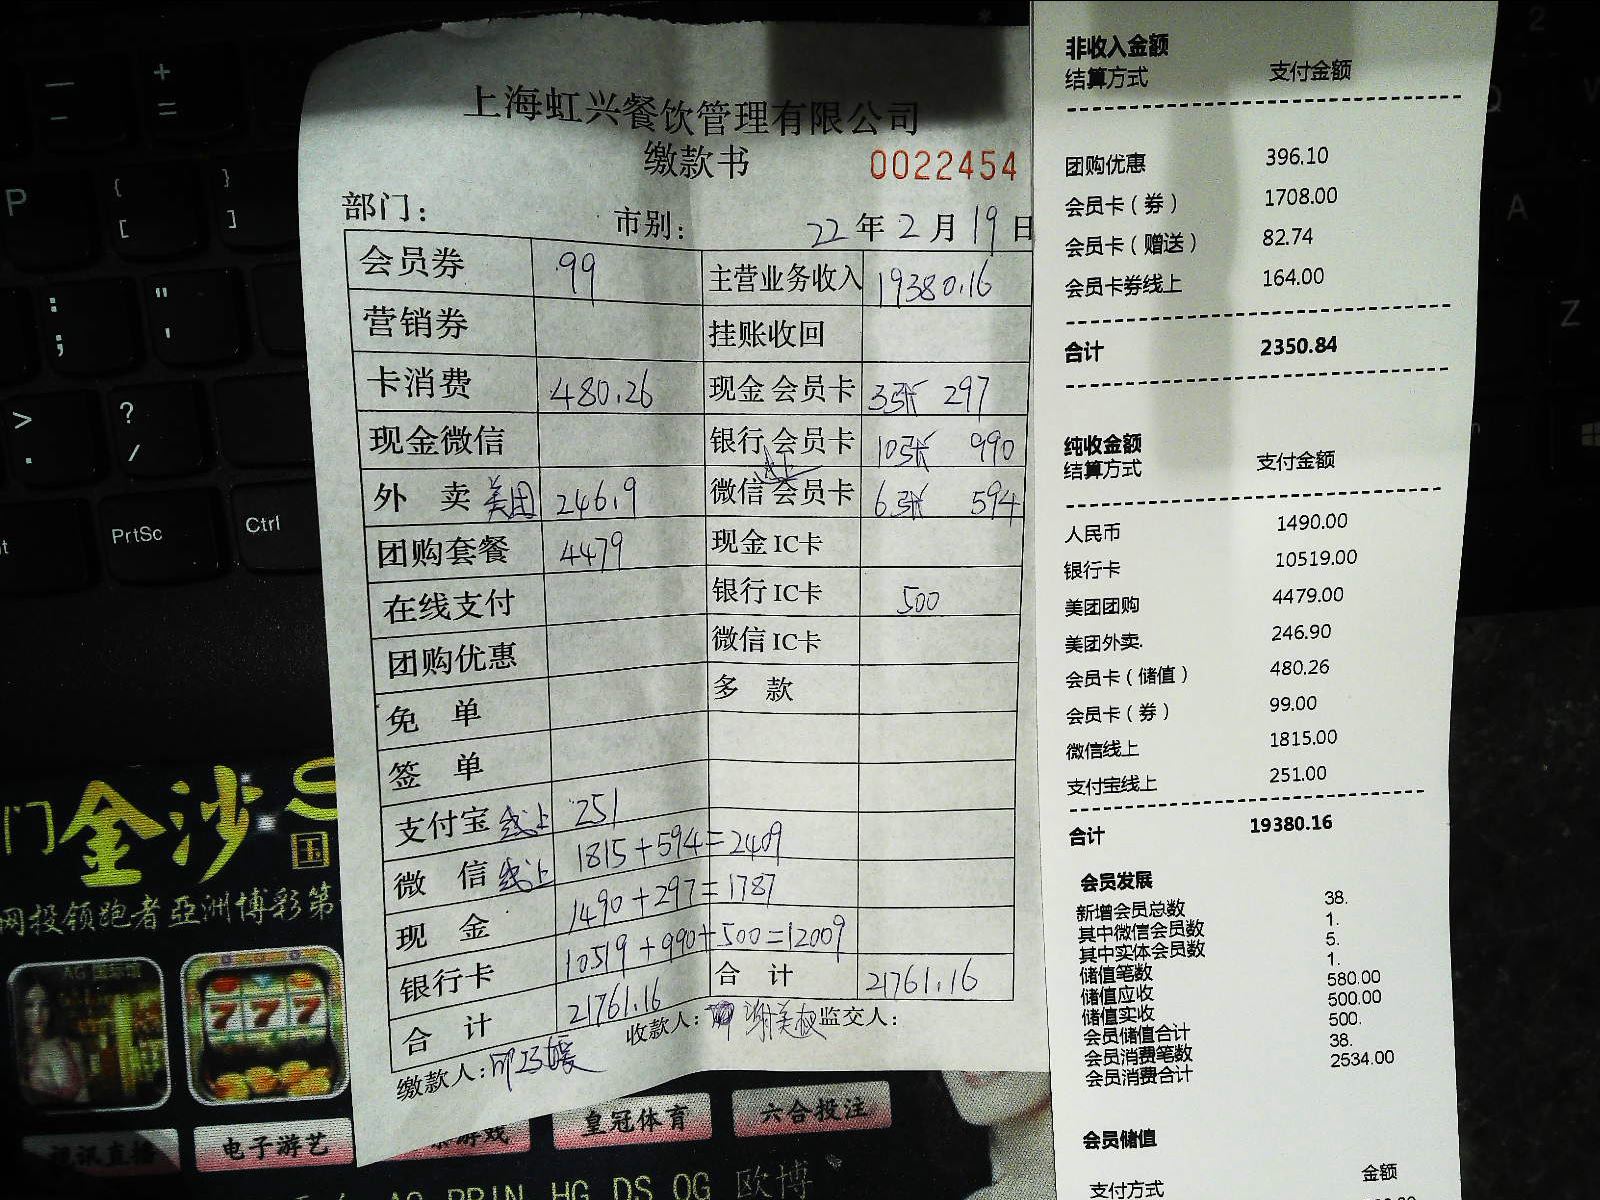 上海虹兴餐饮管理有限公司
缴款书 0022454
部门： 市别： 22年2月19日
会员券 99 主营业务收入 19380.16
营销券 挂账收回
卡消费 480.26 现金会员卡 3张 297
现金微信 银行会员卡 10张 990
外 卖 美团 246.9 微信线上会员卡 6张 594
团购套餐 4479 现金IC卡
在线支付 银行IC卡 500
团购优惠 微信IC卡
免 单 多 款
签 单
支付宝 线上 251
微 信 线上 1815+594=2409
现 金 1490+297=1787
银行卡 10519+990+500=12009
合 计 21761.16 合 计 21761.16
缴款人： 收款人： 监交人：
非收入金额
结算方式 支付金额
团购优惠 396.10
会员卡（券） 1708.00
会员卡（赠送） 82.74
会员卡券线上 164.00
合计 2350.84
纯收金额
结算方式 支付金额
人民币 1490.00
银行卡 10519.00
美团团购 4479.00
美团外卖. 246.90
会员卡（储值） 480.26
会员卡（券） 99.00
微信线上 1815.00
支付宝线上 251.00
合计 19380.16
会员发展
新增会员总数 38.
其中微信会员数 1.
其中实体会员数 5.
储值笔数 1.
储值应收 580.00
储值实收 500.00
会员储值合计 500.
会员消费笔数 38.
会员消费合计 2534.00
会员储值
支付方式 金额
P
{
[
}
]
+
=
:
;
"
'
>
.
?
/
PrtSc
Ctrl
2
Q
A
Z
门金沙
国
网投领跑者亞洲博彩第
AG 国际馆
777
视讯直播
电子游艺
皇冠体育
六合投注
HG DS OG 欧博